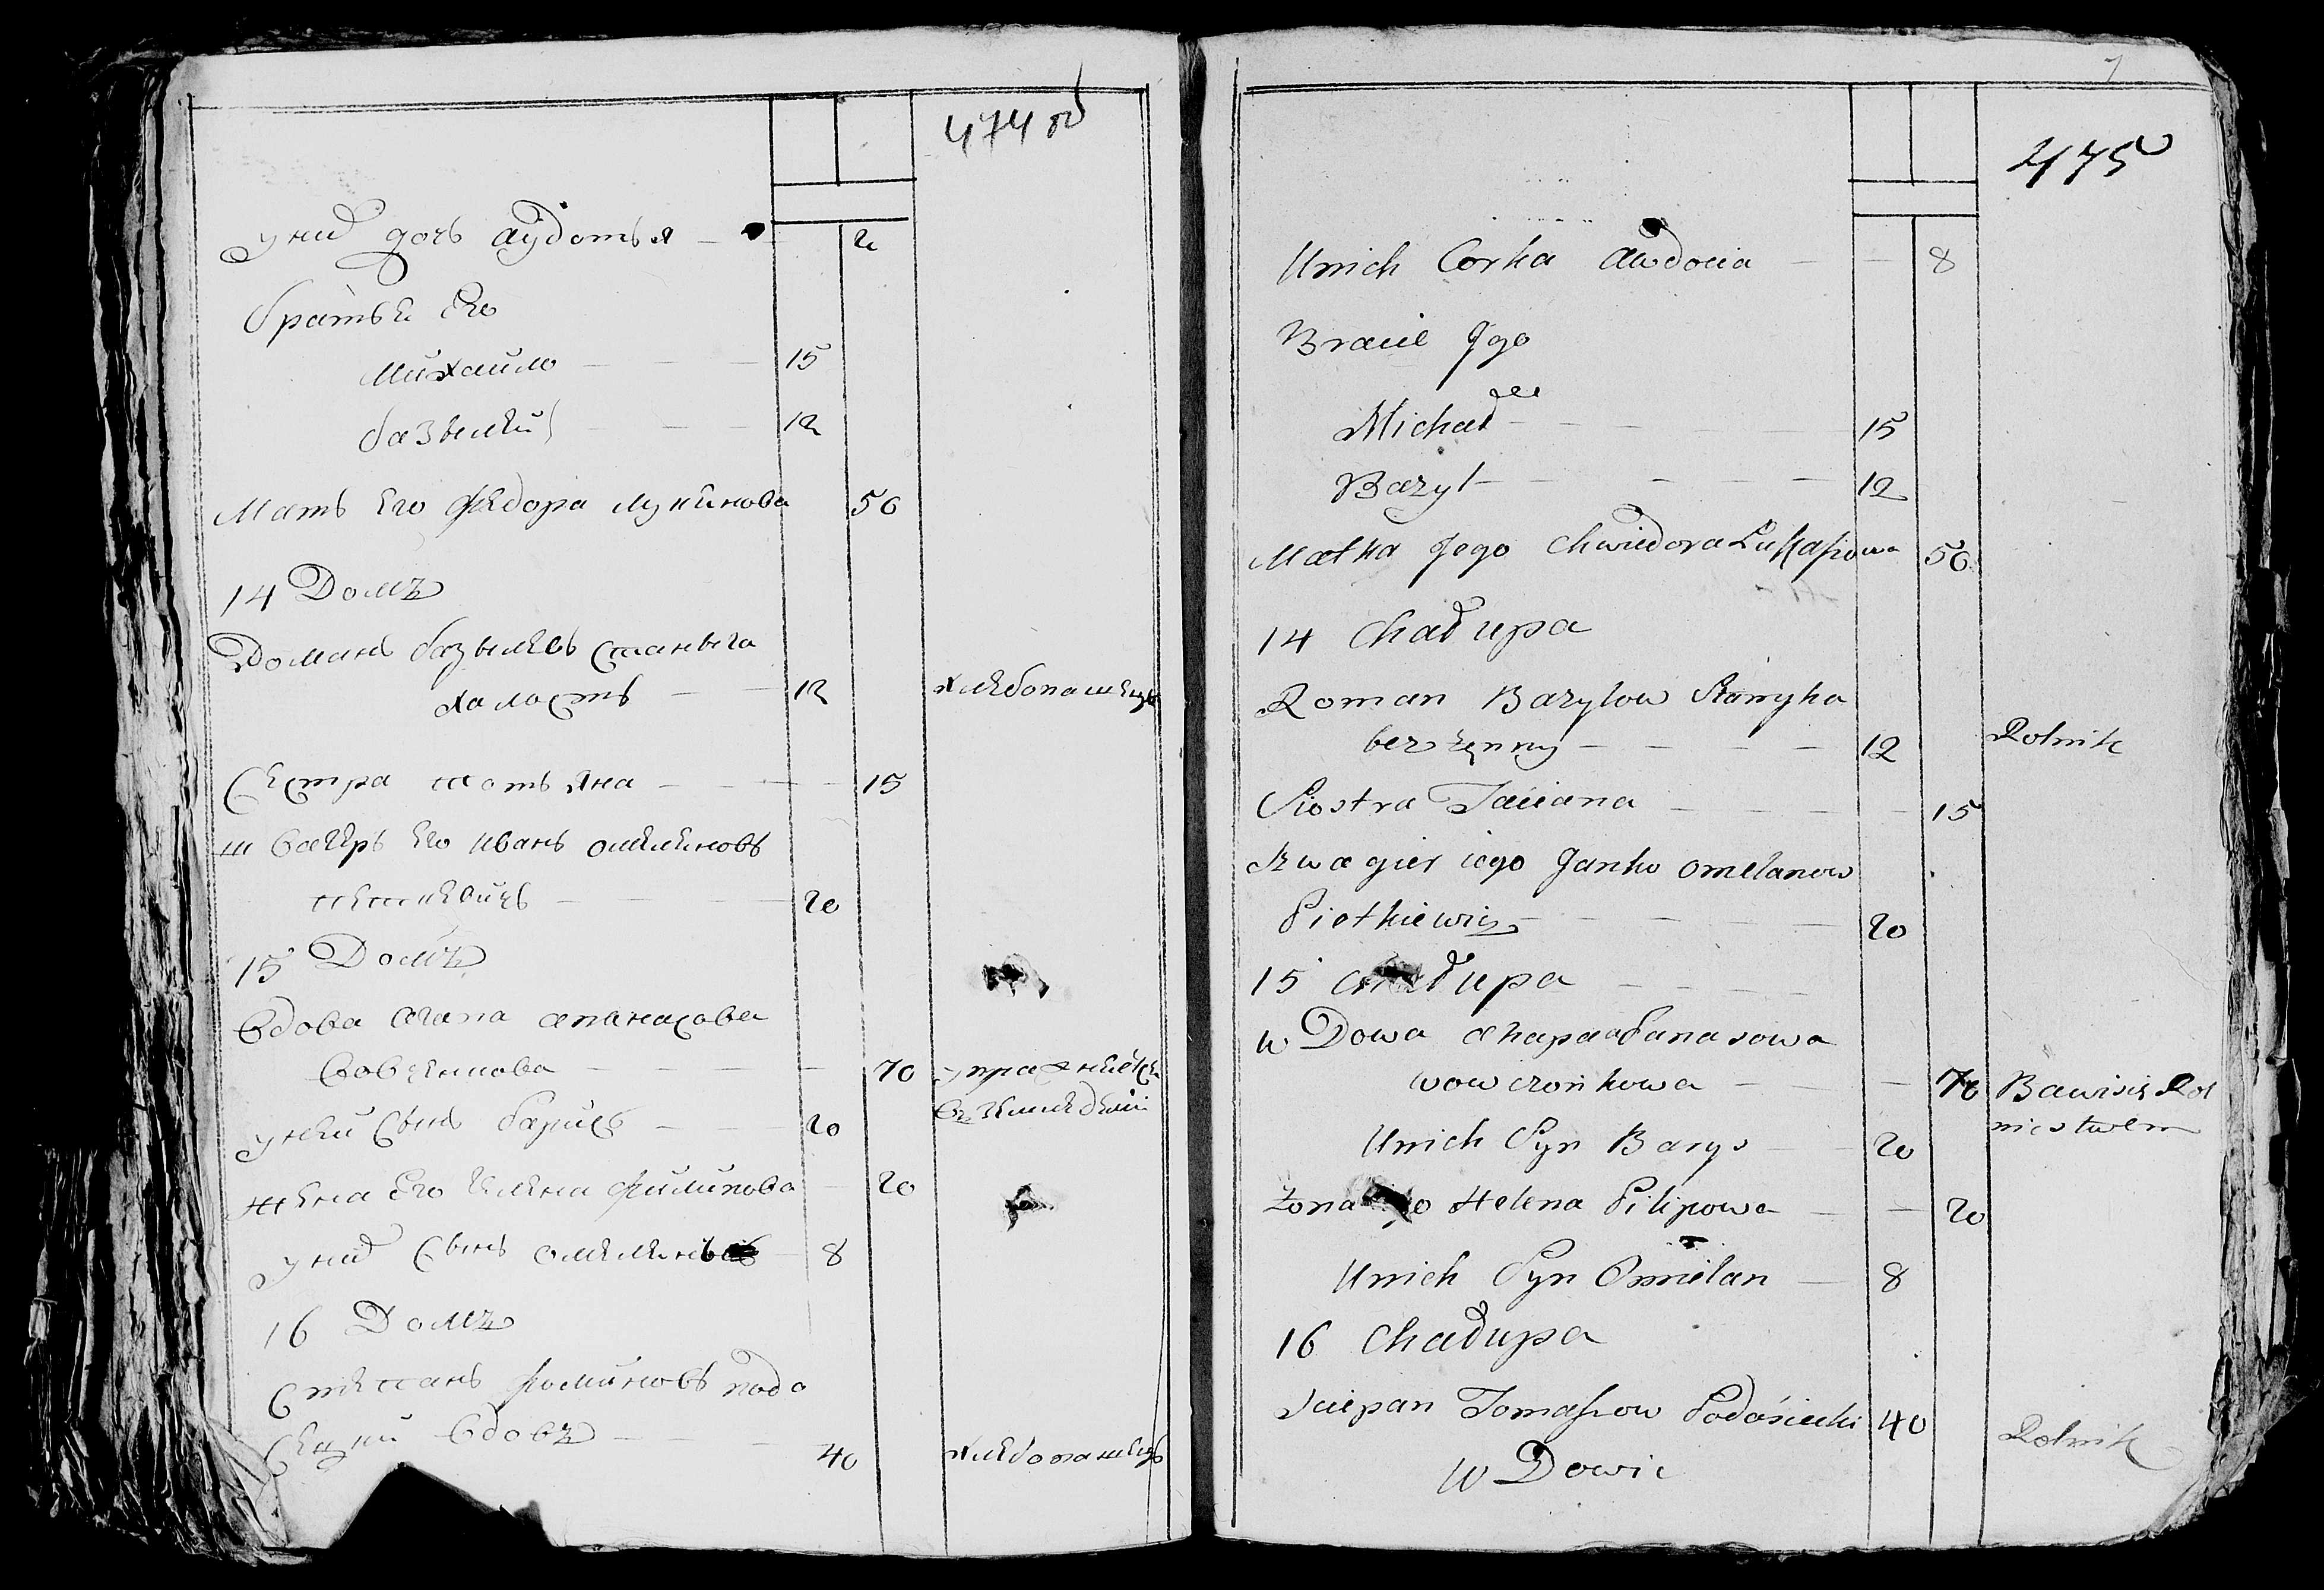 474 об
у них дочь аудотья 8
братья Его
Михайло 15
базылий 12
Мать Его федора лукинова 50
14 Домъ
Романъ базылевъ станыга
халость 12 хлебопашецъ
Сестра татьяна 15
швагеръ Его иванъ омеляновъ
петкевичь 20
15 Домъ
вдова агапа апанасова
вовченкова 70
у ней сынъ барысъ 20
жена Его Елена филипова 20
у них сынъ омелянъ 8
16 Домъ
степанъ фоминовъ подо
сецкий вдовъ 40 хлебопашецъ
7
475
Unich Corka Awdocia 8
Bracie Jgo
Michał 15
Bazyl 12
Matka Jego Chwiedora Łukaszowa 50
14 Chałupa
Roman Bazylow Stannyha
bezżenny 12 Rolnik
Siostra Taciana 15
Szwagier iego Janko Omelanow
Pietkiewicz 20
15 Chałupa
wDowa Ahapa Apanasowa
wowczonkowa 70 Bawisię Rol
nictwem
Unich Syn Barys 20
Żona Jgo Helena Filipowa 20
Unich Syn Omielan 8
16 Chałupa
Sciepan Tomaszow Podosiecki 40 Rolnik
wDowiec